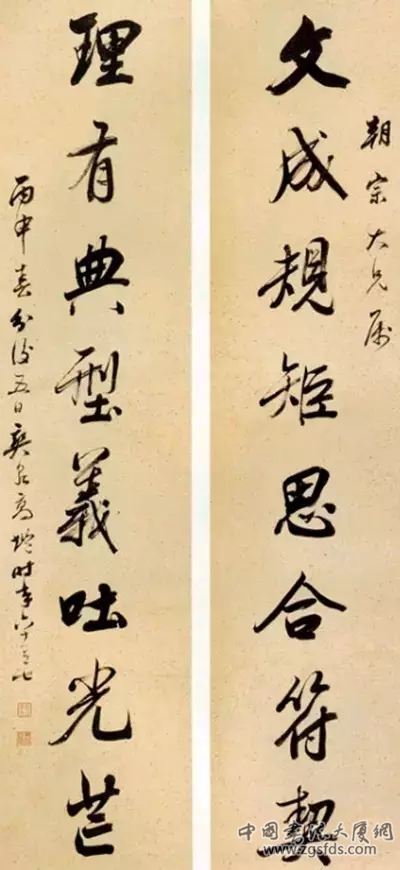 朝宗大兄屬
文成規矩思合符契
理有典型義吐光芒
丙申春分後五日爽泉高塏時年六十有
中國書法大廈網
www.zgsfds.com